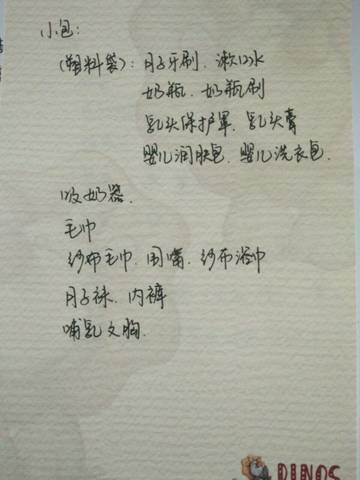 小包:
(塑料袋): 月子牙刷、漱口水
奶瓶、奶瓶刷
乳头保护罩、乳头膏
婴儿润肤皂、婴儿洗衣皂.
吸奶器.
毛巾
纱布毛巾、围嘴、纱布浴巾
月子袜、内裤
哺乳文胸.
DINOS